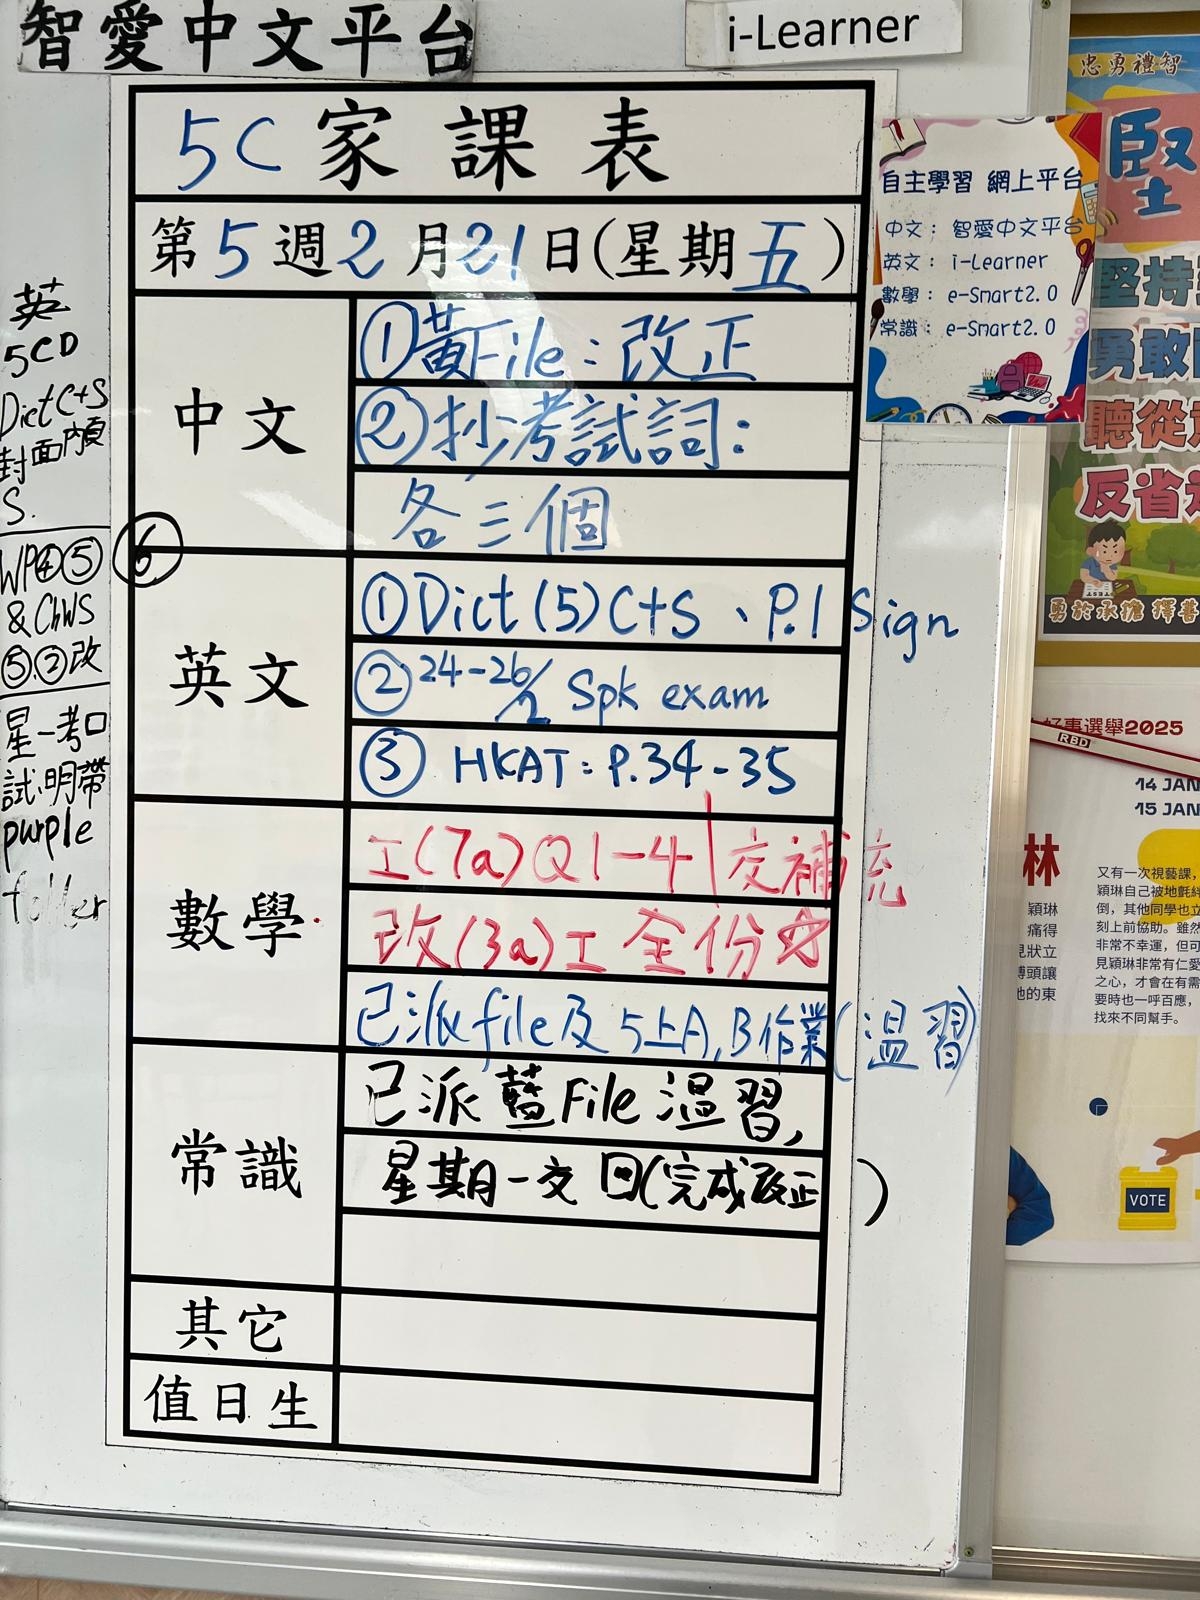 智愛中文平台
i-Learner
5C家課表
第5週2月21日(星期五)
中文
①黃File:改正
②抄考試詞:
各三個
⑥
英文
①Dict(5)C+S、P.1 Sign
②24-26/2 Spk exam
③ HKAT:P.34-35
數學
工(7a)Q1-4|交補充
改(3a)工 全份☆
已派file及5上A,B作業(温習)
常識
已派藍File温習,
星期一交回(完成改正)
其它
值日生
英
5CD
Dict C+S
封面內頁
S.
WP④⑤
& ChWS
⑤.②改
星一考口
試,明帶
purple
folder
自主學習 網上平台
中文: 智愛中文平台
英文: i-Learner
數學: e-Smart2.0
常識: e-Smart2.0
忠勇禮智
堅
堅持
勇敢
聽從
反省
TEST
勇於承擔 擇善
好事選舉2025
RBD
14 JAN
15 JAN
林
穎琳
痛得
見狀立
頭讓
他的東
又有一次視藝課,
穎琳自己被地氈絆
倒,其他同學也立
刻上前協助。雖然
非常不幸運,但可
見穎琳非常有仁愛
之心,才會在有需
要時也一呼百應,
找來不同幫手。
VOTE